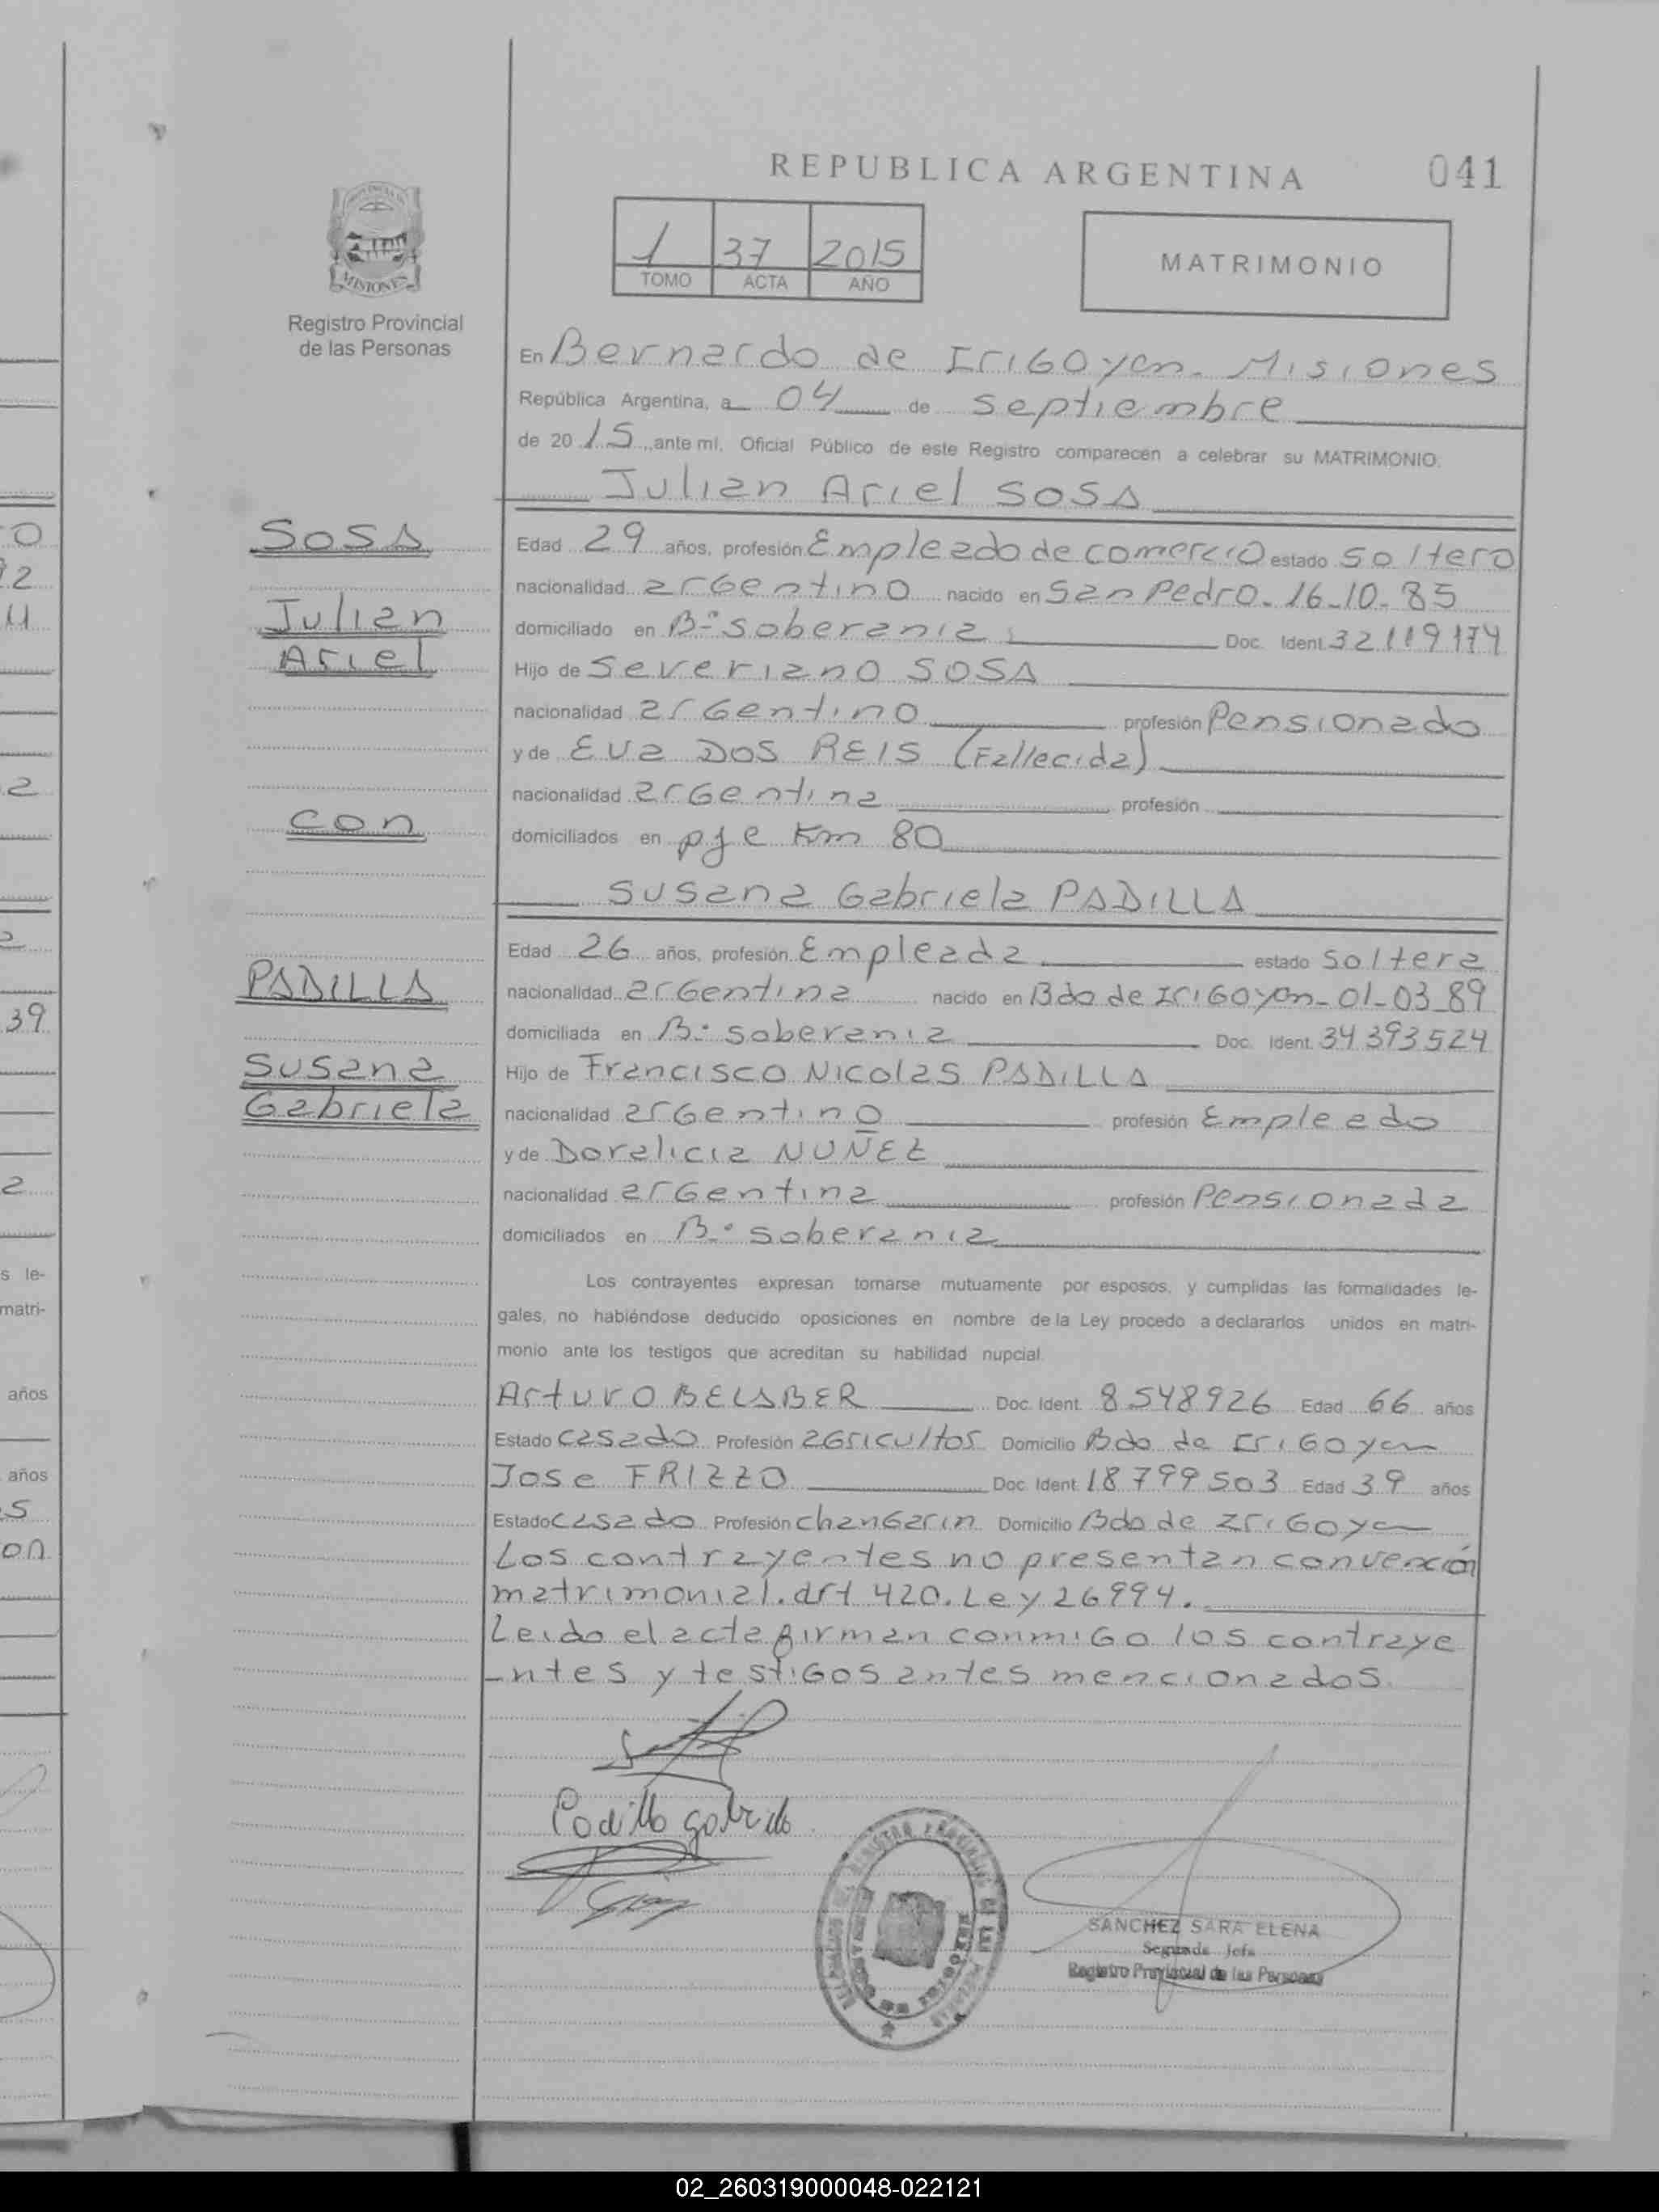 REPUBLICA ARGENTINA 041
1 37 2015
TOMO ACTA AÑO
MATRIMONIO
MISIONES
Registro Provincial
de las Personas
En Bernardo de IriGoyen. Misiones
República Argentina, a 04 de septiembre
de 20 15 ante mí, Oficial Público de este Registro comparecen a celebrar su MATRIMONIO:
Julian Ariel SOSA
SOSA
Julian
Ariel
con
PADILLA
Susana
Gabriela
Edad 29 años, profesión Empleado de comercio estado soltero
nacionalidad arGentino nacido en San Pedro. 16-10-85
domiciliado en B° soberania Doc. Ident. 32119174
Hijo de Severiano SOSA
nacionalidad arGentino profesión Pensionado
y de Eva DOS REIS (Fallecida)
nacionalidad arGentina profesión
domiciliados en pje Km 80
Susana Gabriela PADILLA
Edad 26 años, profesión Empleada estado soltera
nacionalidad arGentina nacido en Bdo de IriGoyen-01-03-89
domiciliada en B° soberania Doc. Ident. 34393524
Hijo de Francisco Nicolas PADILLA
nacionalidad arGentino profesión Empleado
y de Doralicia NUÑEZ
nacionalidad arGentina profesión Pensionada
domiciliados en B° soberania
Los contrayentes expresan tomarse mutuamente por esposos, y cumplidas las formalidades le-
gales, no habiéndose deducido oposiciones en nombre de la Ley procedo a declararlos unidos en matri-
monio ante los testigos que acreditan su habilidad nupcial.
Arturo BELABER Doc. Ident. 8.548926 Edad 66 años
Estado casado Profesión aGricultor Domicilio Bdo de IriGoyen
Jose FRIZZO Doc. Ident. 18799503 Edad 39 años
Estado casado Profesión chanGarin Domicilio Bdo de IriGoyen
Los contrayentes no presentan convención
matrimonial. art 420. Ley 26994.
Leido el acta firman conmiGo los contraye
-ntes y testiGos antes mencionados.
Padilla gabriela
SANCHEZ SARA ELENA
Segunda Jefa
Registro Provincial de las Personas
02_260319000048-022121